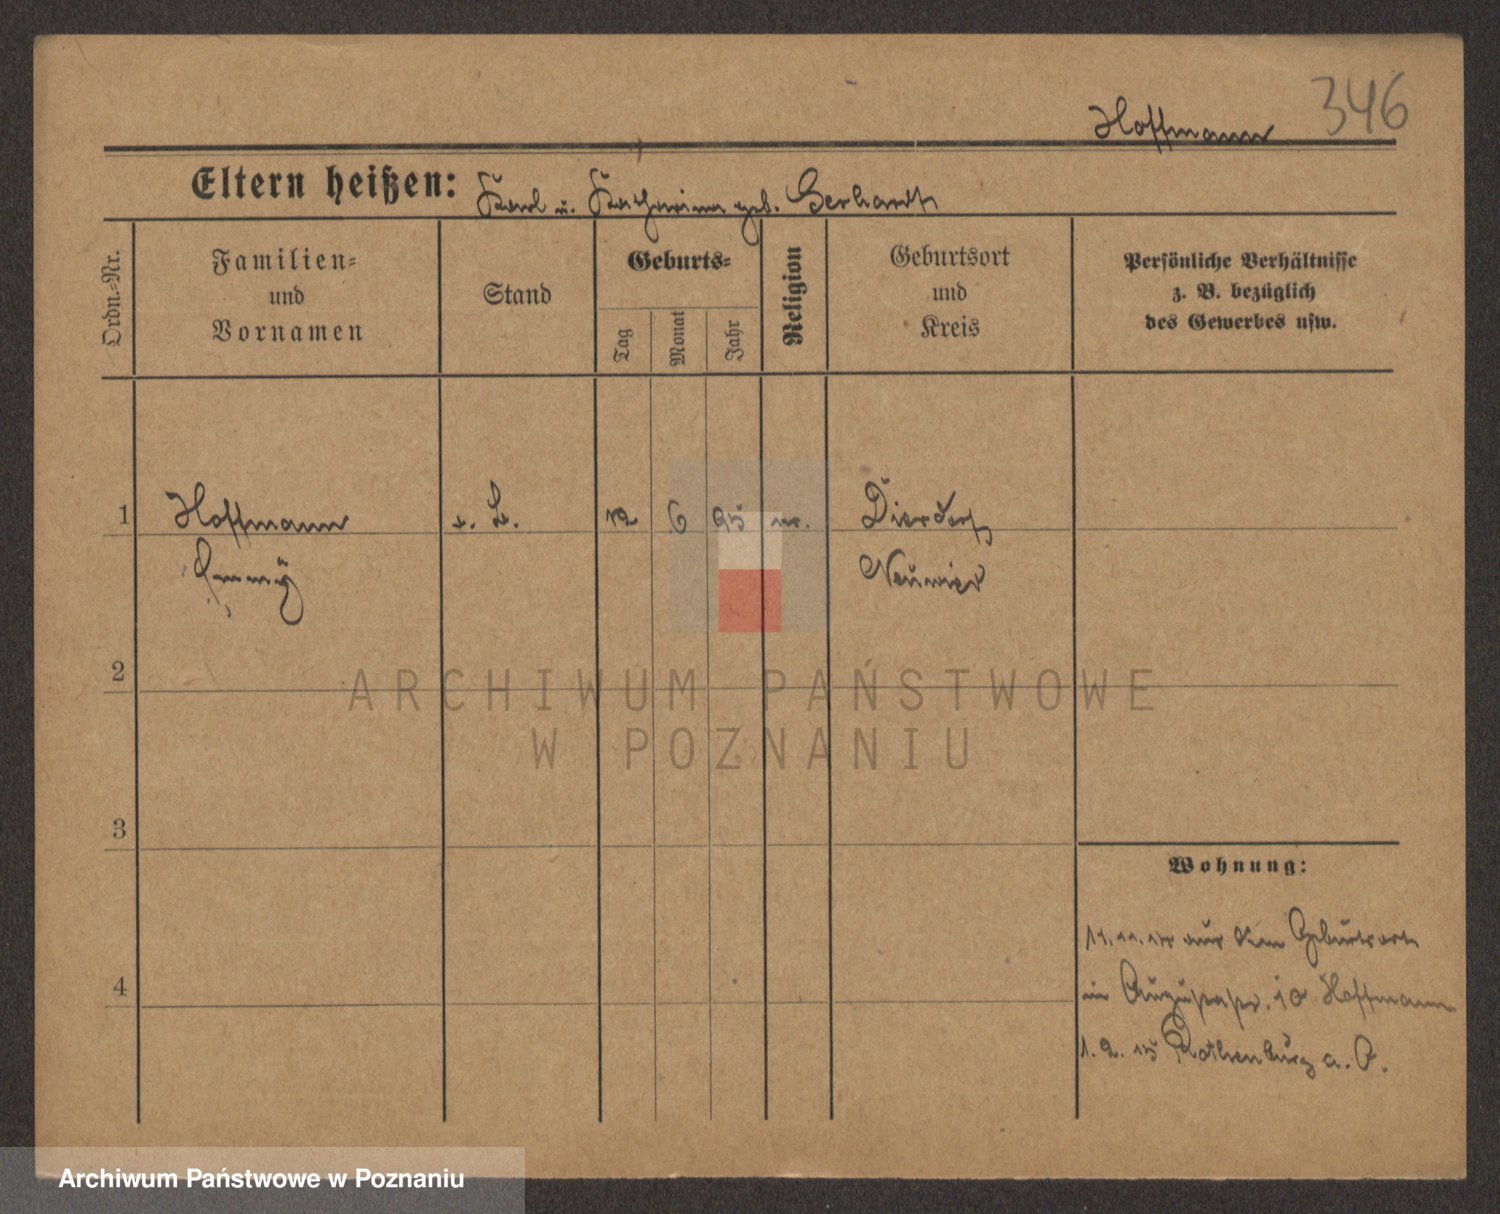 346
Hoffmann
Eltern heißen: Karl u. Katharina geb. Gerhardt
Ordn.-Nr.
Familien-
und
Vornamen
Stand
Geburts-
Tag
Monat
Jahr
Religion
Geburtsort
und
Kreis
Persönliche Verhältnisse
z. B. bezüglich
des Gewerbes usw.
1 Hoffmann 6 95 Dierdorf
Emmÿ Neuwied
2
ARCHIWUM PAŃSTWOWE
W POZNANIU
3
Wohnung:
11.11. aus dem Geburtsort
in Augustastr. 10 Hoffmann
4
1. 2. 15 Rothenburg a. O.
Archiwum Państwowe w Poznaniu